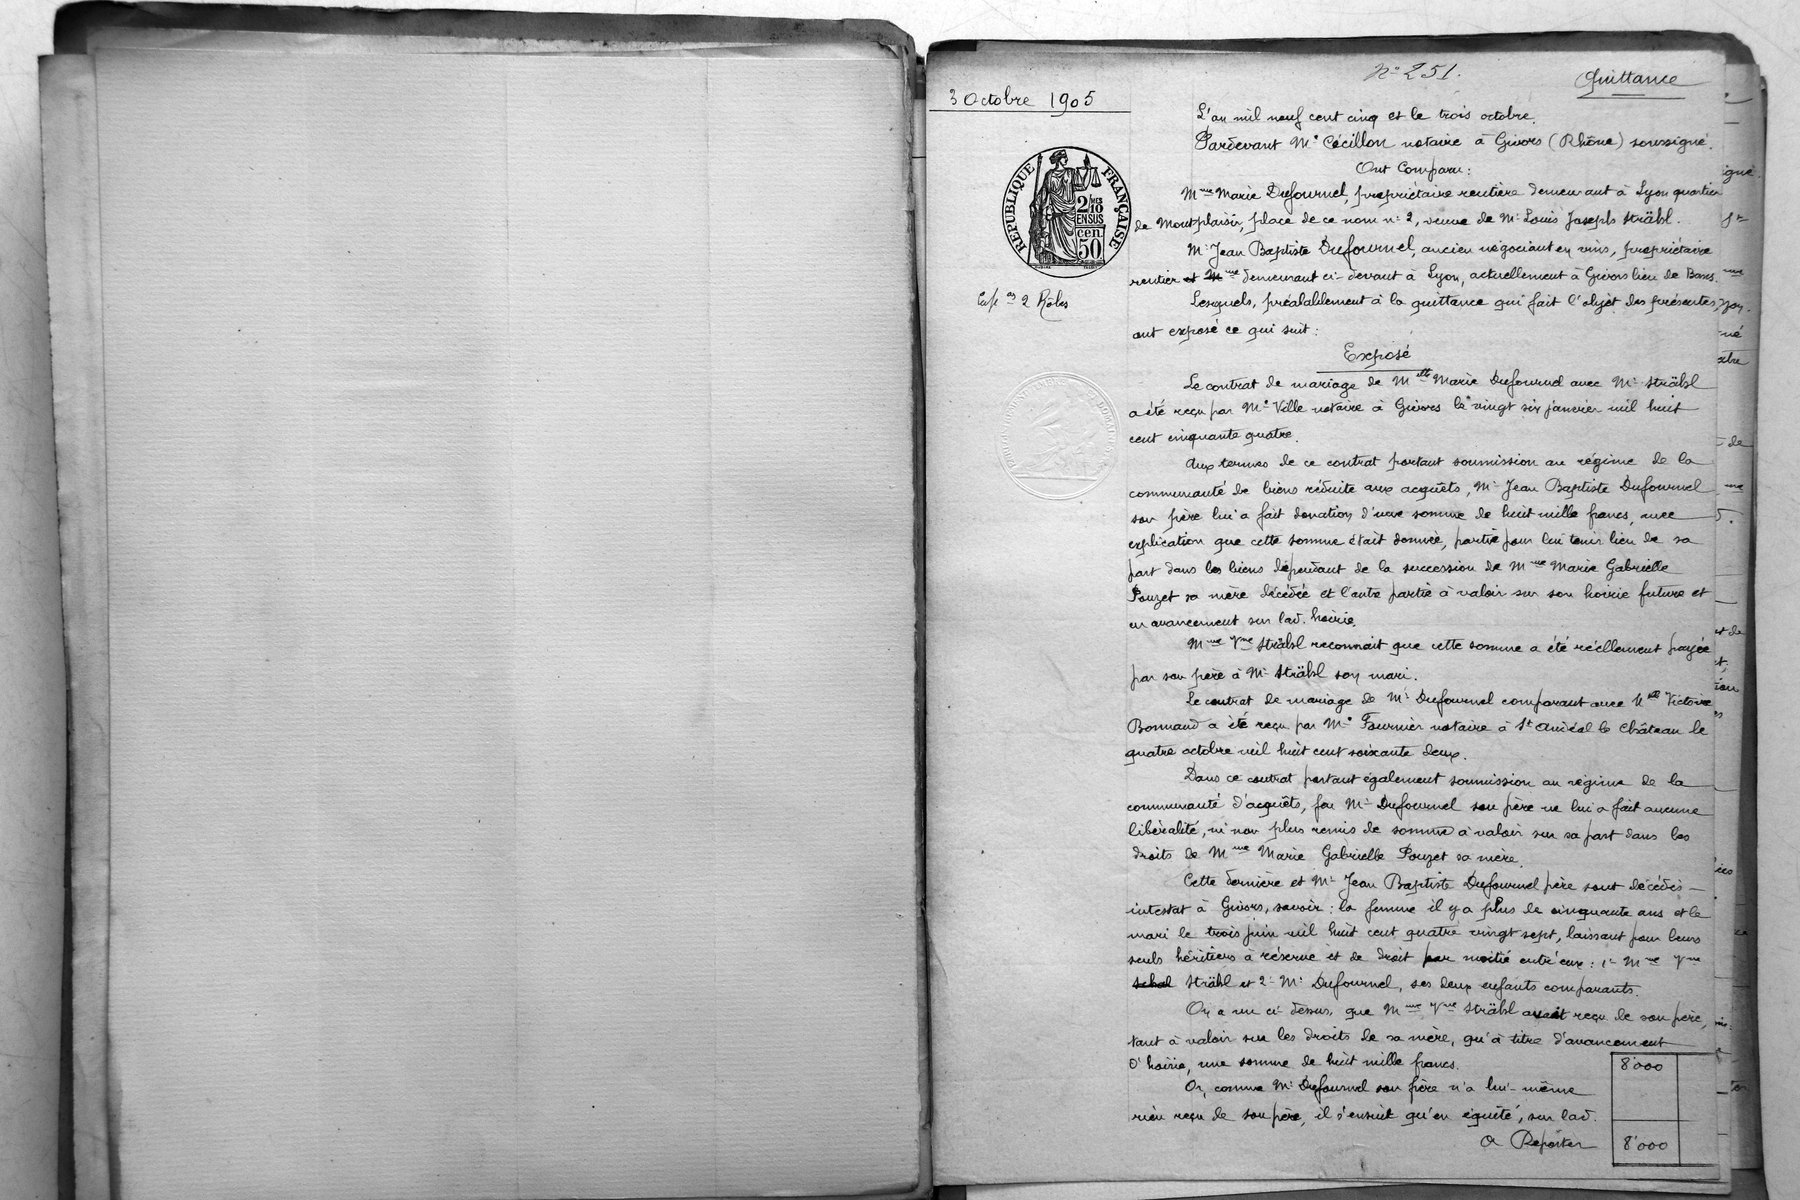 N° 251.
Quittance
3 Octobre 1905
L'an mil neuf cent cinq et le trois octobre.
Pardevant Me Cécillon notaire à Givors (Rhône) soussigné.
Ont Comparu :
Mme Marie Dufournel, propriétaire rentière demeurant à Lyon quartier
de Montplaisir, place de ce nom n° 2, veuve de Mr Louis Joseph Strähl.
Mr Jean Baptiste Dufournel, ancien négociant en vins, propriétaire
rentier et Mme demeurant ci-devant à Lyon, actuellement à Givors lieu de Bans.
Lesquels, préalablement à la quittance qui fait l'objet des présentes,
ont exposé ce qui suit :
Exposé
Le contrat de mariage de Melle Marie Dufournel avec Mr Strähl
a été reçu par Me Ville notaire à Givors le vingt six janvier mil huit
cent cinquante quatre.
Aux termes de ce contrat portant soumission au régime de la
communauté de biens réduite aux acquêts, Mr Jean Baptiste Dufournel
son père lui a fait donation d'une somme de huit mille francs, avec
explication que cette somme était donnée, partie pour lui tenir lieu de sa
part dans les biens dépendant de la succession de Mme Marie Gabrielle
Pouzet sa mère décédée et l'autre partie à valoir sur son hoirie future et
en avancement sur lad. hoirie.
Mme Vve Strähl reconnait que cette somme a été réellement payée
par son père à Mr Strähl son mari.
Le contrat de mariage de Mr Dufournel comparant avec Melle Victoire
Bonnand a été reçu par Me Fournier notaire à St le Château le
quatre octobre mil huit cent soixante deux.
Dans ce contrat portant également soumission au régime de la
communauté d'acquêts, feu Mr Dufournel son père ne lui a fait aucune
libéralité, ni non plus remis de somme à valoir sur sa part dans les
droits de Mme Marie Gabrielle Pouzet sa mère.
Cette dernière et Mr Jean Baptiste Dufournel père sont décédés
intestat à Givors, savoir : la femme il y a plus de cinquante ans et le
mari le trois juin mil huit cent quatre vingt sept, laissant pour leurs
seuls héritiers à réserve et de droit par moitié entr'eux : 1° Mme Vve
Strähl et 2° Mr Dufournel, ses deux enfants comparants.
On a vu ci-dessus, que Mme Vve Strähl avait reçu de son père,
tant à valoir sur les droits de sa mère, qu'à titre d'avancement
d'hoirie, une somme de huit mille francs.
8'000
Or, comme Mr Dufournel son frère n'a lui-même
rien reçu de son père, il s'ensuit qu'en équité, sur lad.
A Reporter 8'000
RÉPUBLIQUE FRANÇAISE
2 MES 10 EN SUS
50 cen.
2 Rôles